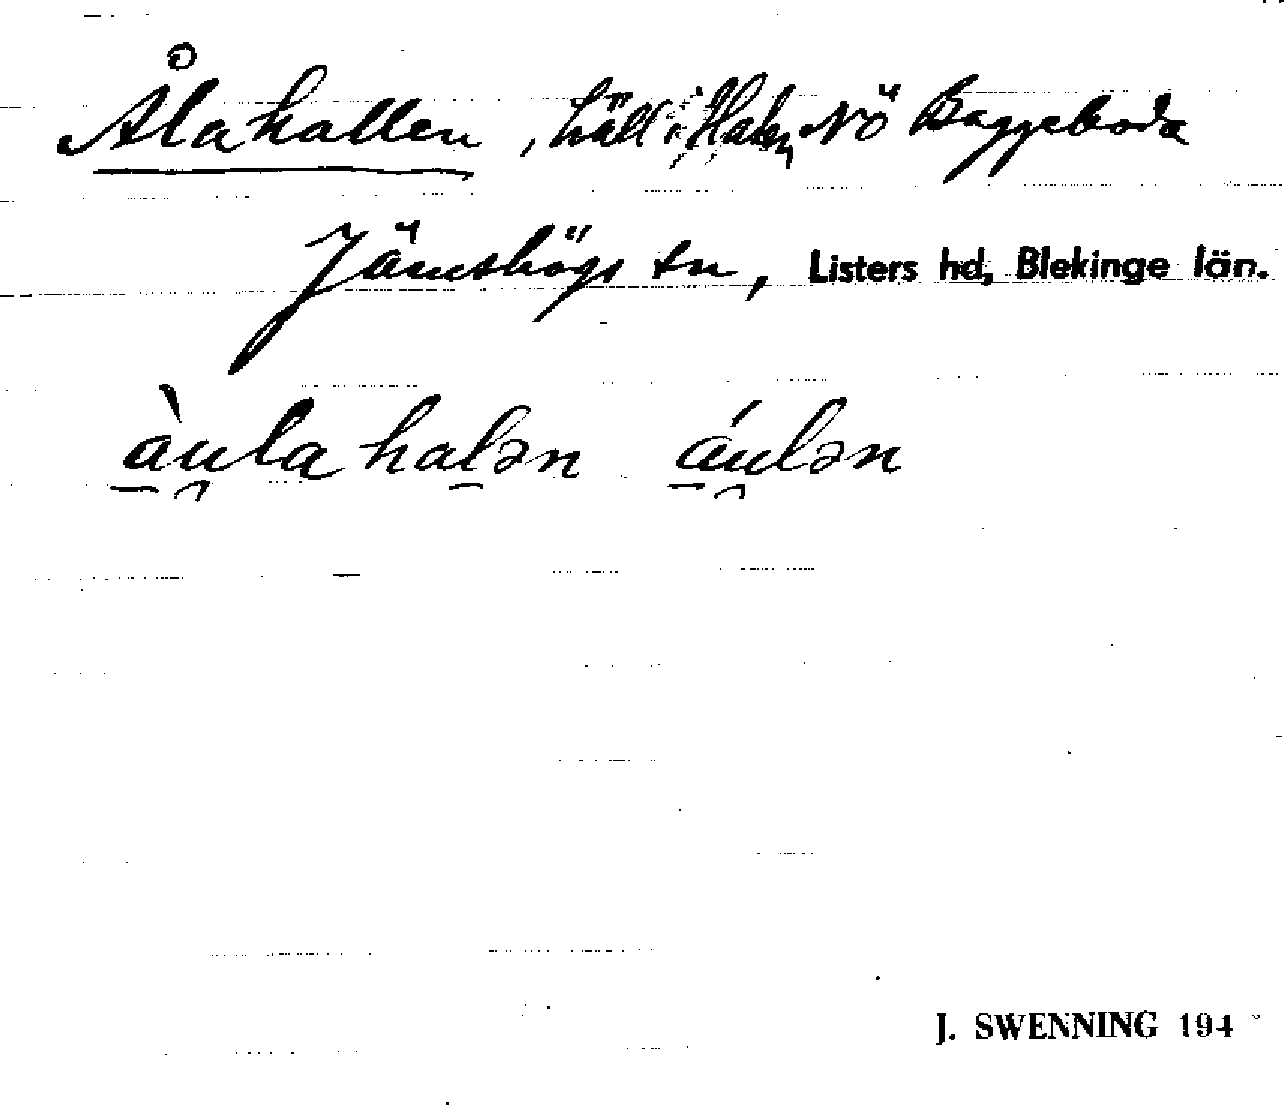 Ålahallen, häll i Halen NÖ Baggeboda
Jämshögs sn, Listers hd, Blekinge län.
àu̯la hal̠ən áu̯lən
J. SWENNING 194